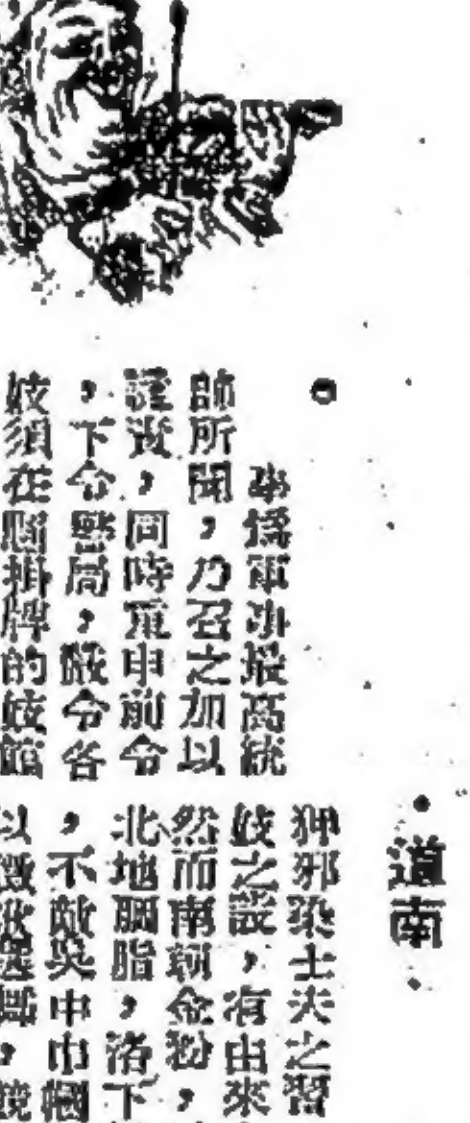 道南
事為軍事最高統
帥所聞，乃召之加以
譴責，同時重申前令
，下令警局，嚴令各
妓須在腦掛牌的妓館
狎邪染士夫之習
妓之說，有由來
然而南朝金粉，
北地胭脂，洛下
，不敵吳中巾幗
以微